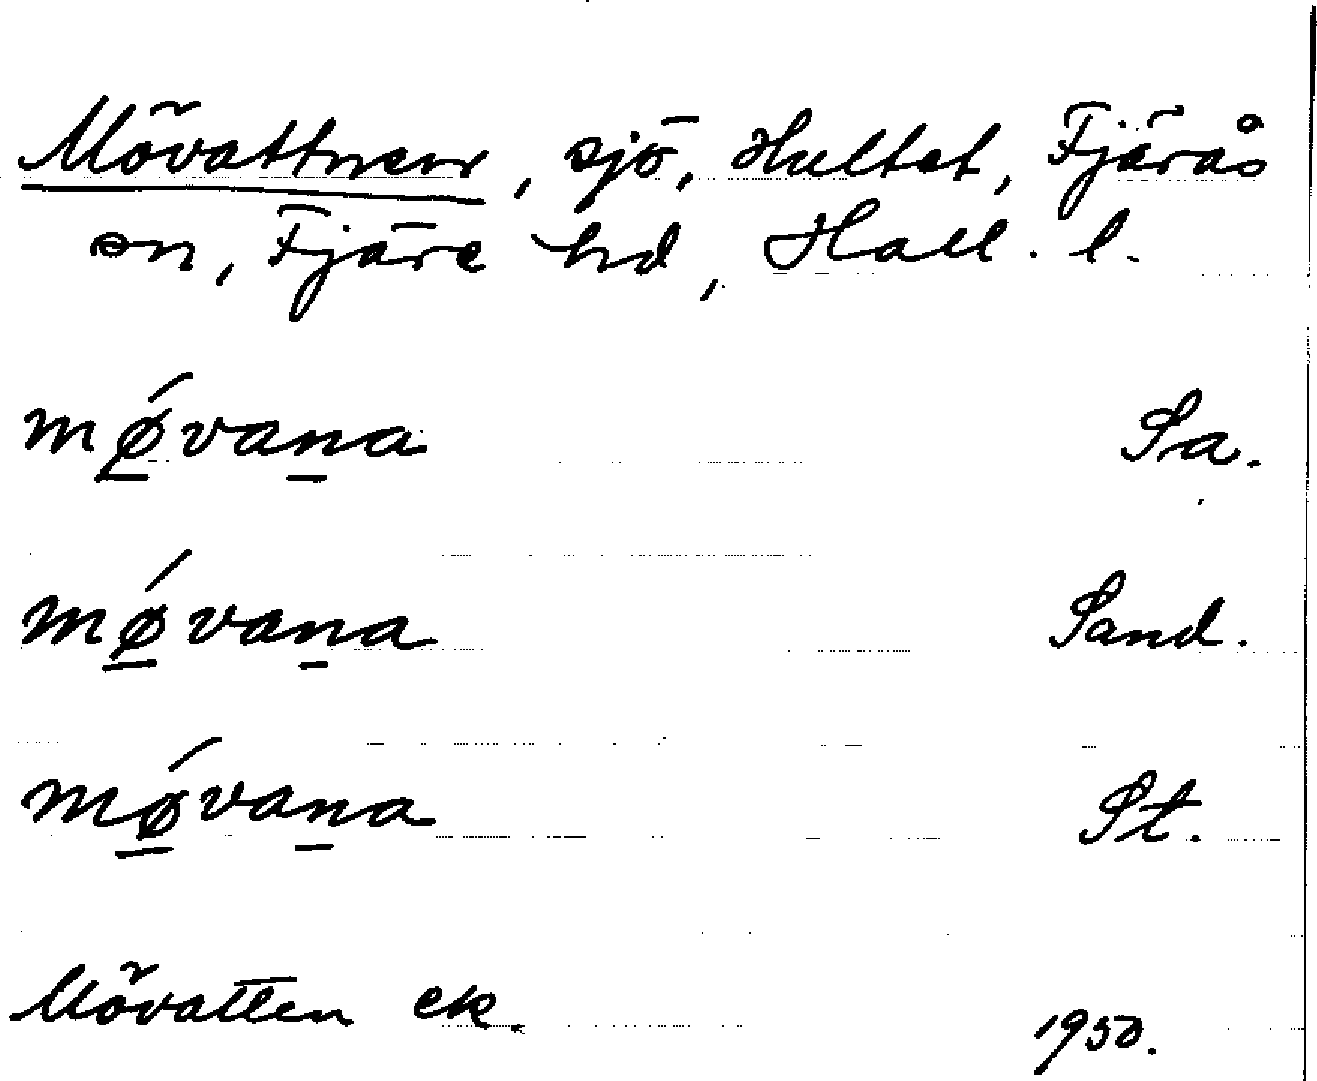 Mövattnen, sjö, Hultet, Fjärås
sn, Fjäre hd, Hall. l.
mǿ̲van̲a Sa.
mǿ̲van̲a Sand.
mǿ̲van̲a St.
Mövatten ek. 1950.